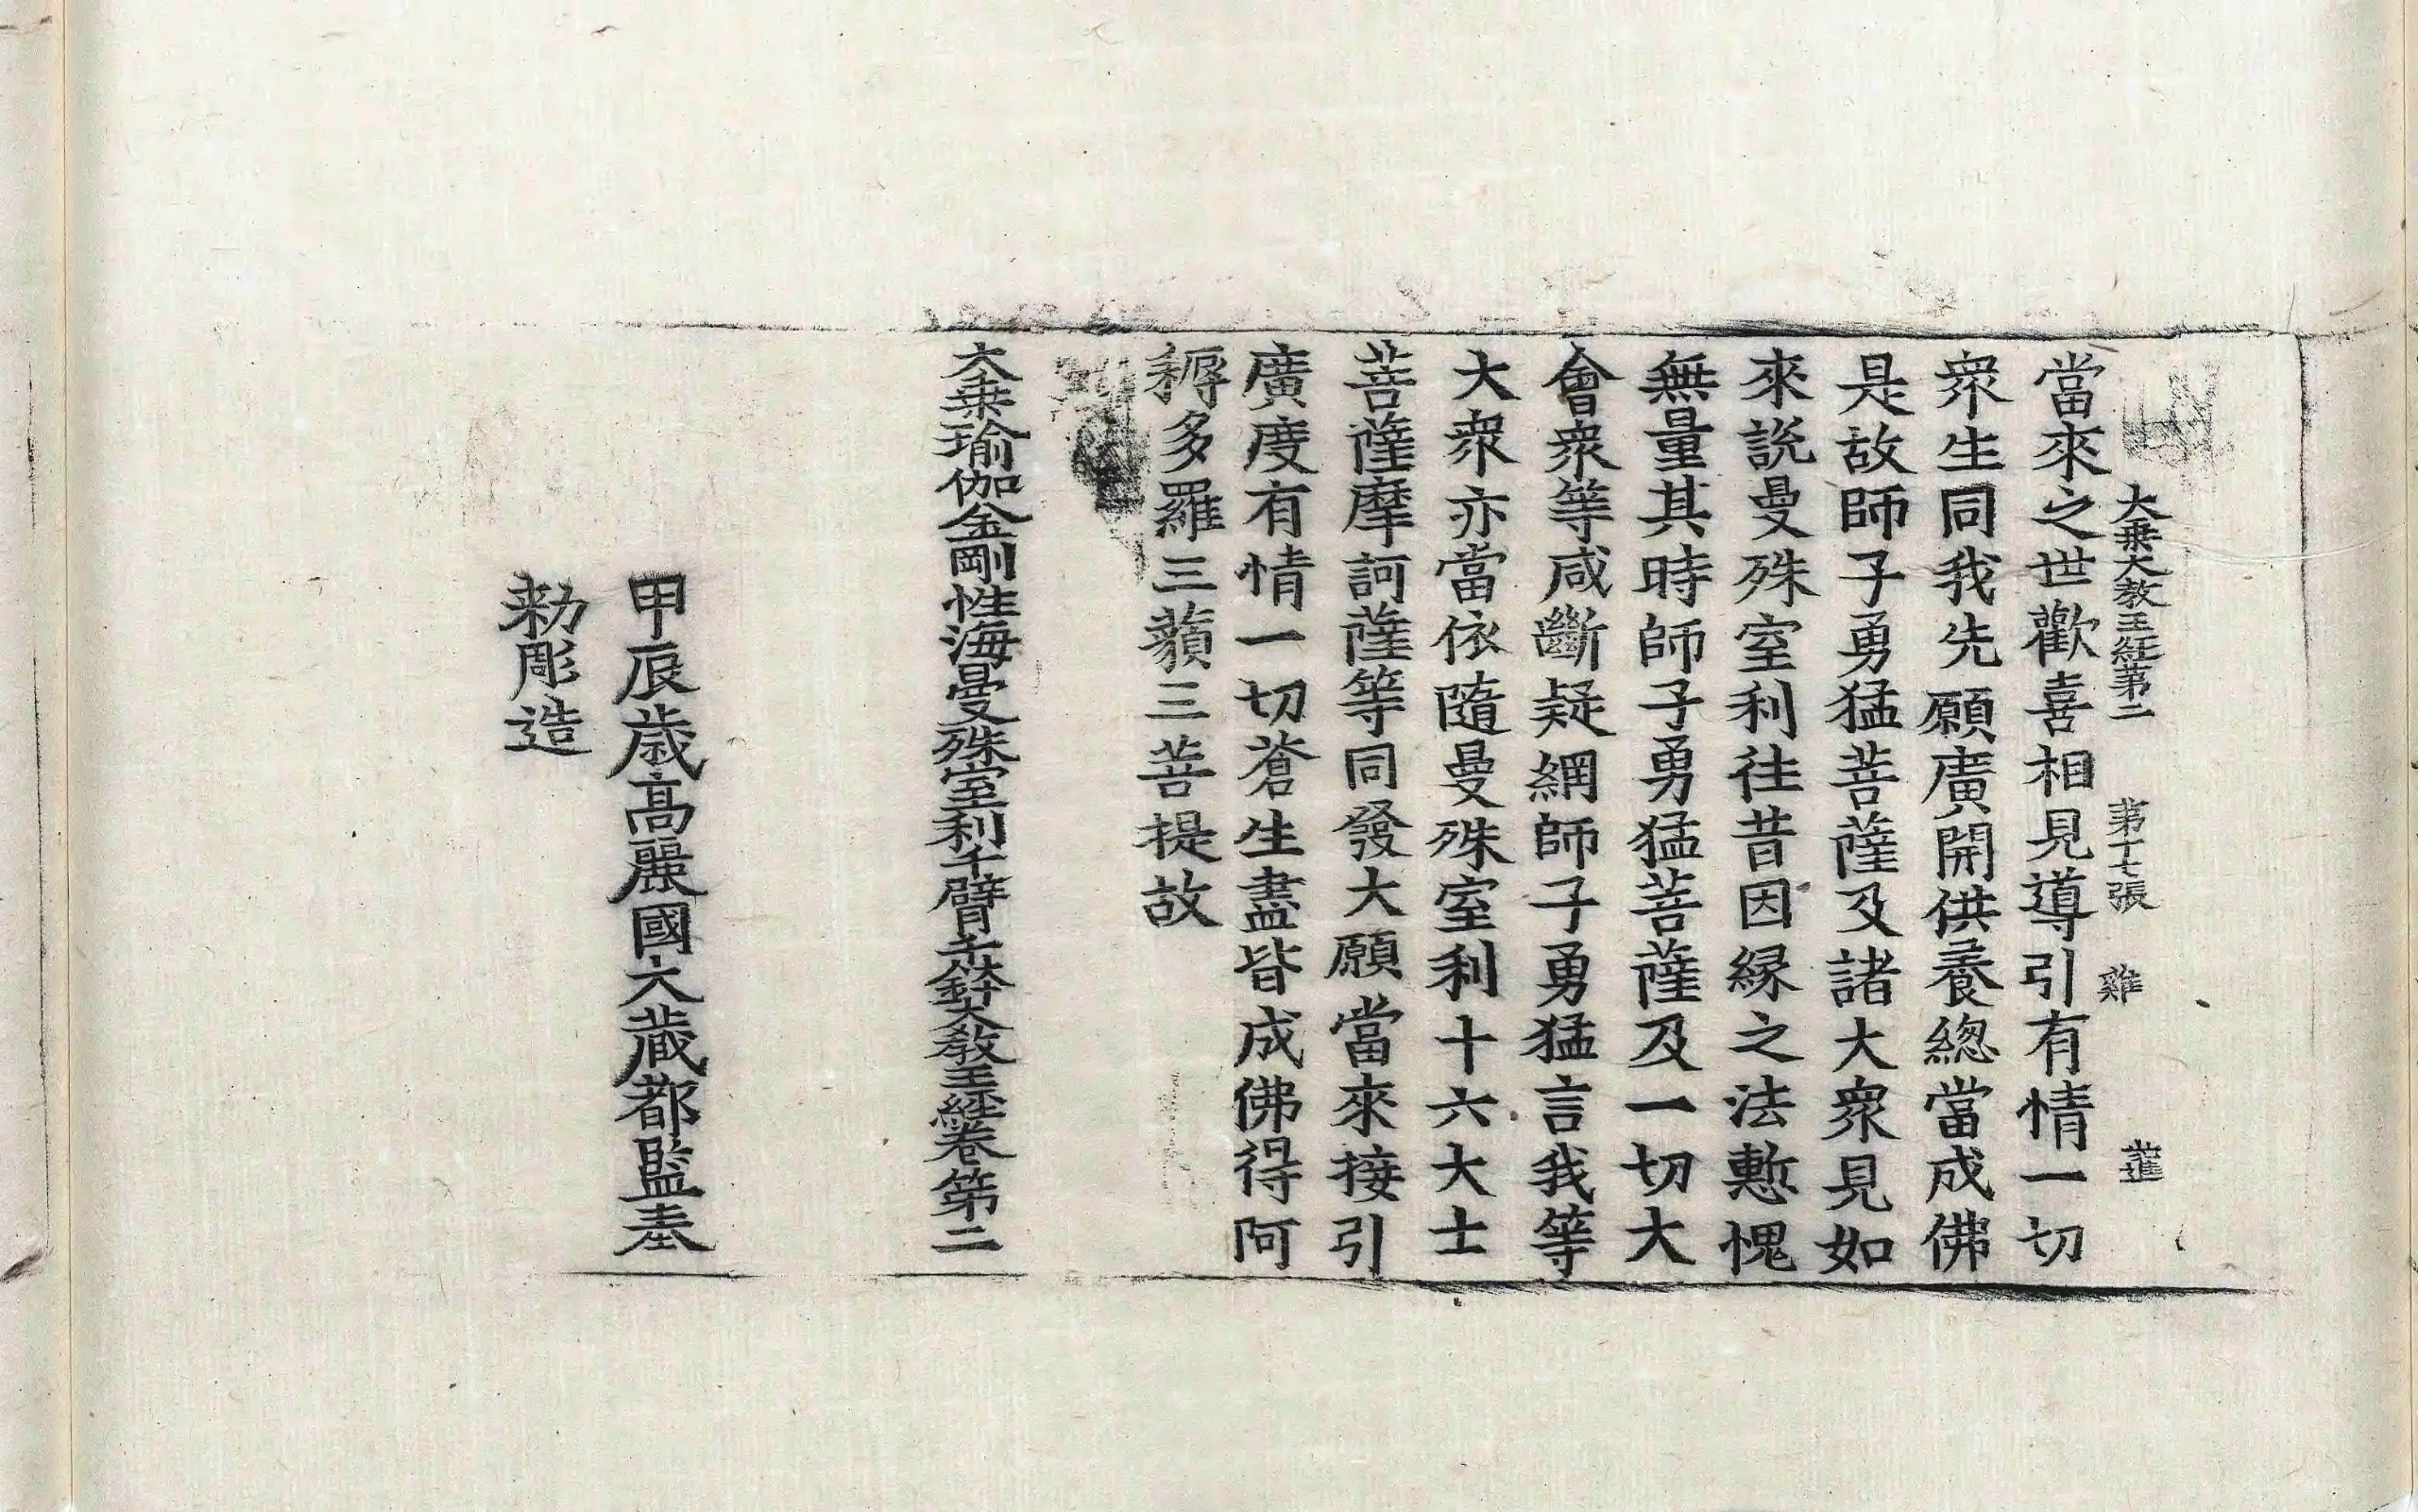 大乗大教王経第二 第十七張 雞
當來之世歡喜相見導引有情一切
衆生同我先願廣開供養緫當成佛
是故師子勇猛菩薩及諸大衆見如
來説曼殊室利往昔因縁之法慙愧
無量其時師子勇猛菩薩及一切大
會衆等咸斷疑網師子勇猛言我等
大衆亦當依隨曼殊室利十六大士
菩薩摩訶薩等同發大願當來接引
廣度有情一切蒼生盡皆成佛得阿
耨多羅三藐三菩提故
大乗瑜伽金剛性海曼殊室利千臂千鉢大教王経卷第二
甲辰歳高麗國大藏都監奉
勅彫造